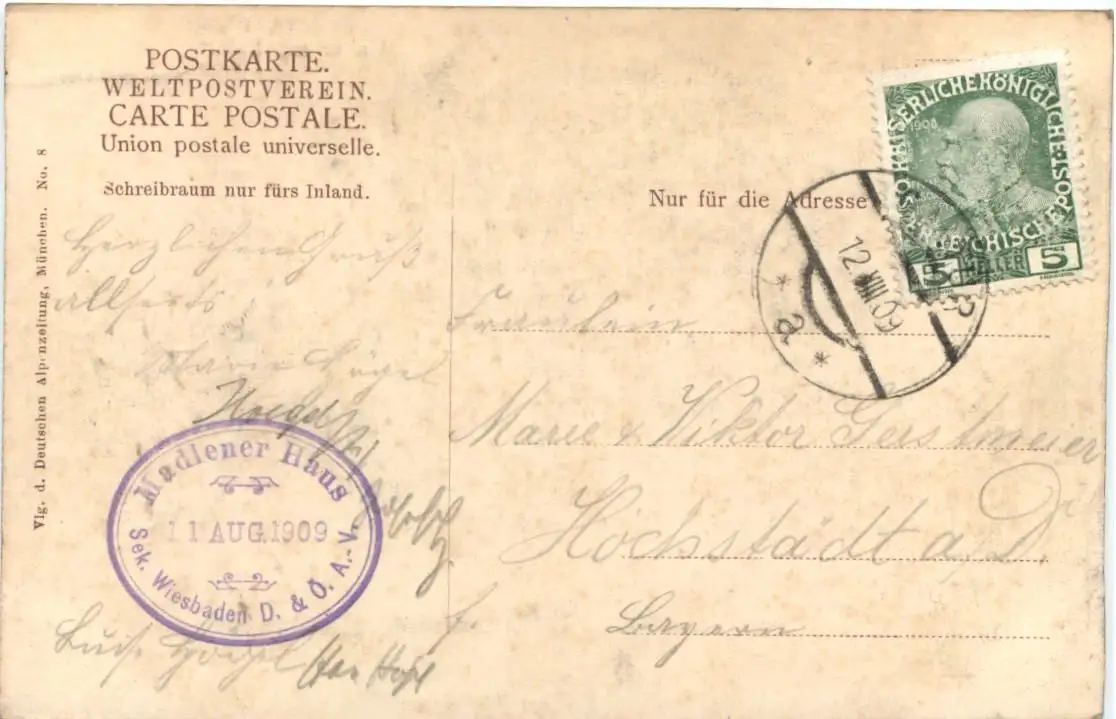 POSTKARTE.
WELTPOSTVEREIN.
CARTE POSTALE.
Union postale universelle.
Schreibraum nur fürs Inland.
Nur für die Adresse
Vlg. d. Deutschen Alpenzeitung, München. No. 8
KAISERLICHE KÖNIGLICHE
ÖSTERREICHISCHE POST
1908
5 HELLER 5
12 VIII 09
* a *
Herzlichen Gruß
allseits
Marie
Madlener Haus
11 AUG. 1909
Sek. Wiesbaden D. & Ö. A.-V.
Fräulein
Marie & Viktor Gerstmeier
Höchstädt a/D
Bayern